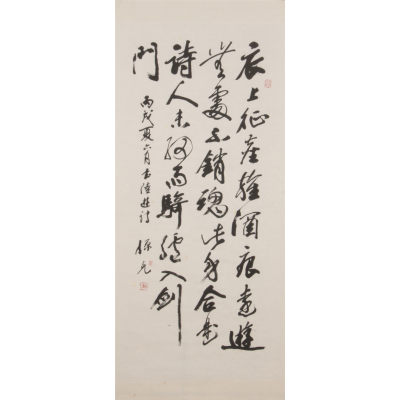 衣上征塵雜酒痕遠遊
無處不銷魂此身合是
詩人未細雨騎驢入劍
門
丙戌夏六月書陸游詩